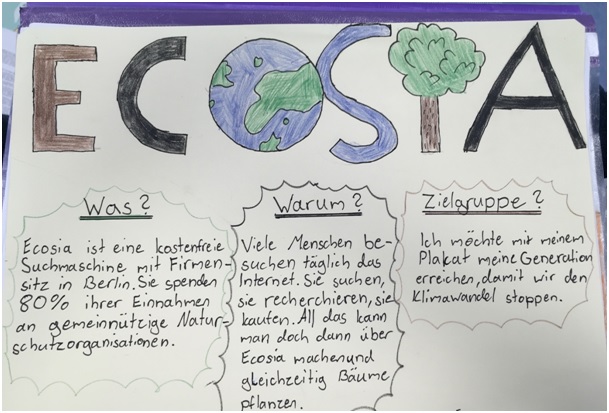 ECOSIA
Was?
Ecosia ist eine kostenfreie
Suchmaschine mit Firmen-
sitz in Berlin. Sie spenden
80% ihrer Einnahmen
an gemeinnützige Natur-
schutzorganisationen.
Warum?
Viele Menschen be-
suchen täglich das
Internet. Sie suchen,
sie recherchieren, sie
kaufen. All das kann
man doch dann über
Ecosia machen und
gleichzeitig Bäume
pflanzen.
Zielgruppe?
Ich möchte mit meinem
Plakat meine Generation
erreichen, damit wir den
Klimawandel stoppen.